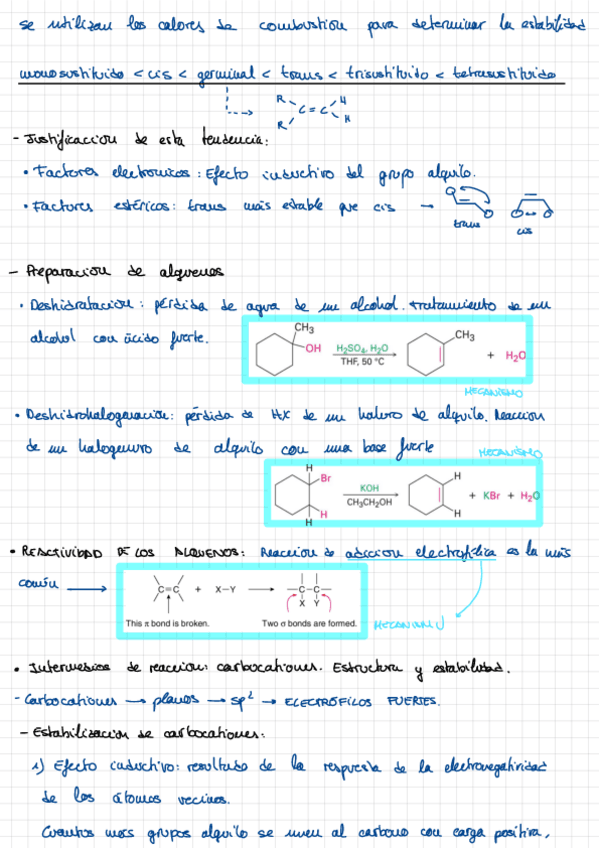 se utilizan los calores de combustión para determinar la estabilidad
monosustituido < cis < germinal < trans < trisustituido < tetrasustituido
R R C = C H H
- Justificacion de esta tendencia:
• Factores electronicos: Efecto inductivo del grupo alquilo.
• Factores estéricos: trans más estable que cis →
trans
cis
- Preparacion de alquenos
• Deshidratacion: pérdida de agua de un alcohol. tratamiento de un
alcohol con ácido fuerte.
CH3
OH
H2SO4, H2O
THF, 50 °C
CH3
+ H2O
MECANISMO
• Deshidrohalogenacion: pérdida de HX de un haluro de alquilo. Reaccion
de un halogenuro de alquilo con una base fuerte
MECANISMO
H
Br
H
H
KOH
CH3CH2OH
H
H
+ KBr + H2O
• REACTIVIDAD DE LOS ALQUENOS: Reaccion de adicion electrofílica es la más
común →
C=C + X–Y → –C–C–
X Y
This π bond is broken.
Two σ bonds are formed.
MECANISMO
• Intermedios de reaccion: carbocationes. Estructura y estabilidad.
- Carbocationes → planos → sp2 → ELECTRÓFILOS FUERTES.
- Estabilizacion de carbocationes:
1) Efecto inductivo: resultado de la respuesta de la electronegatividad
de los átomos vecinos.
Cuantos mas grupos alquilo se unen al carbono con carga positiva,